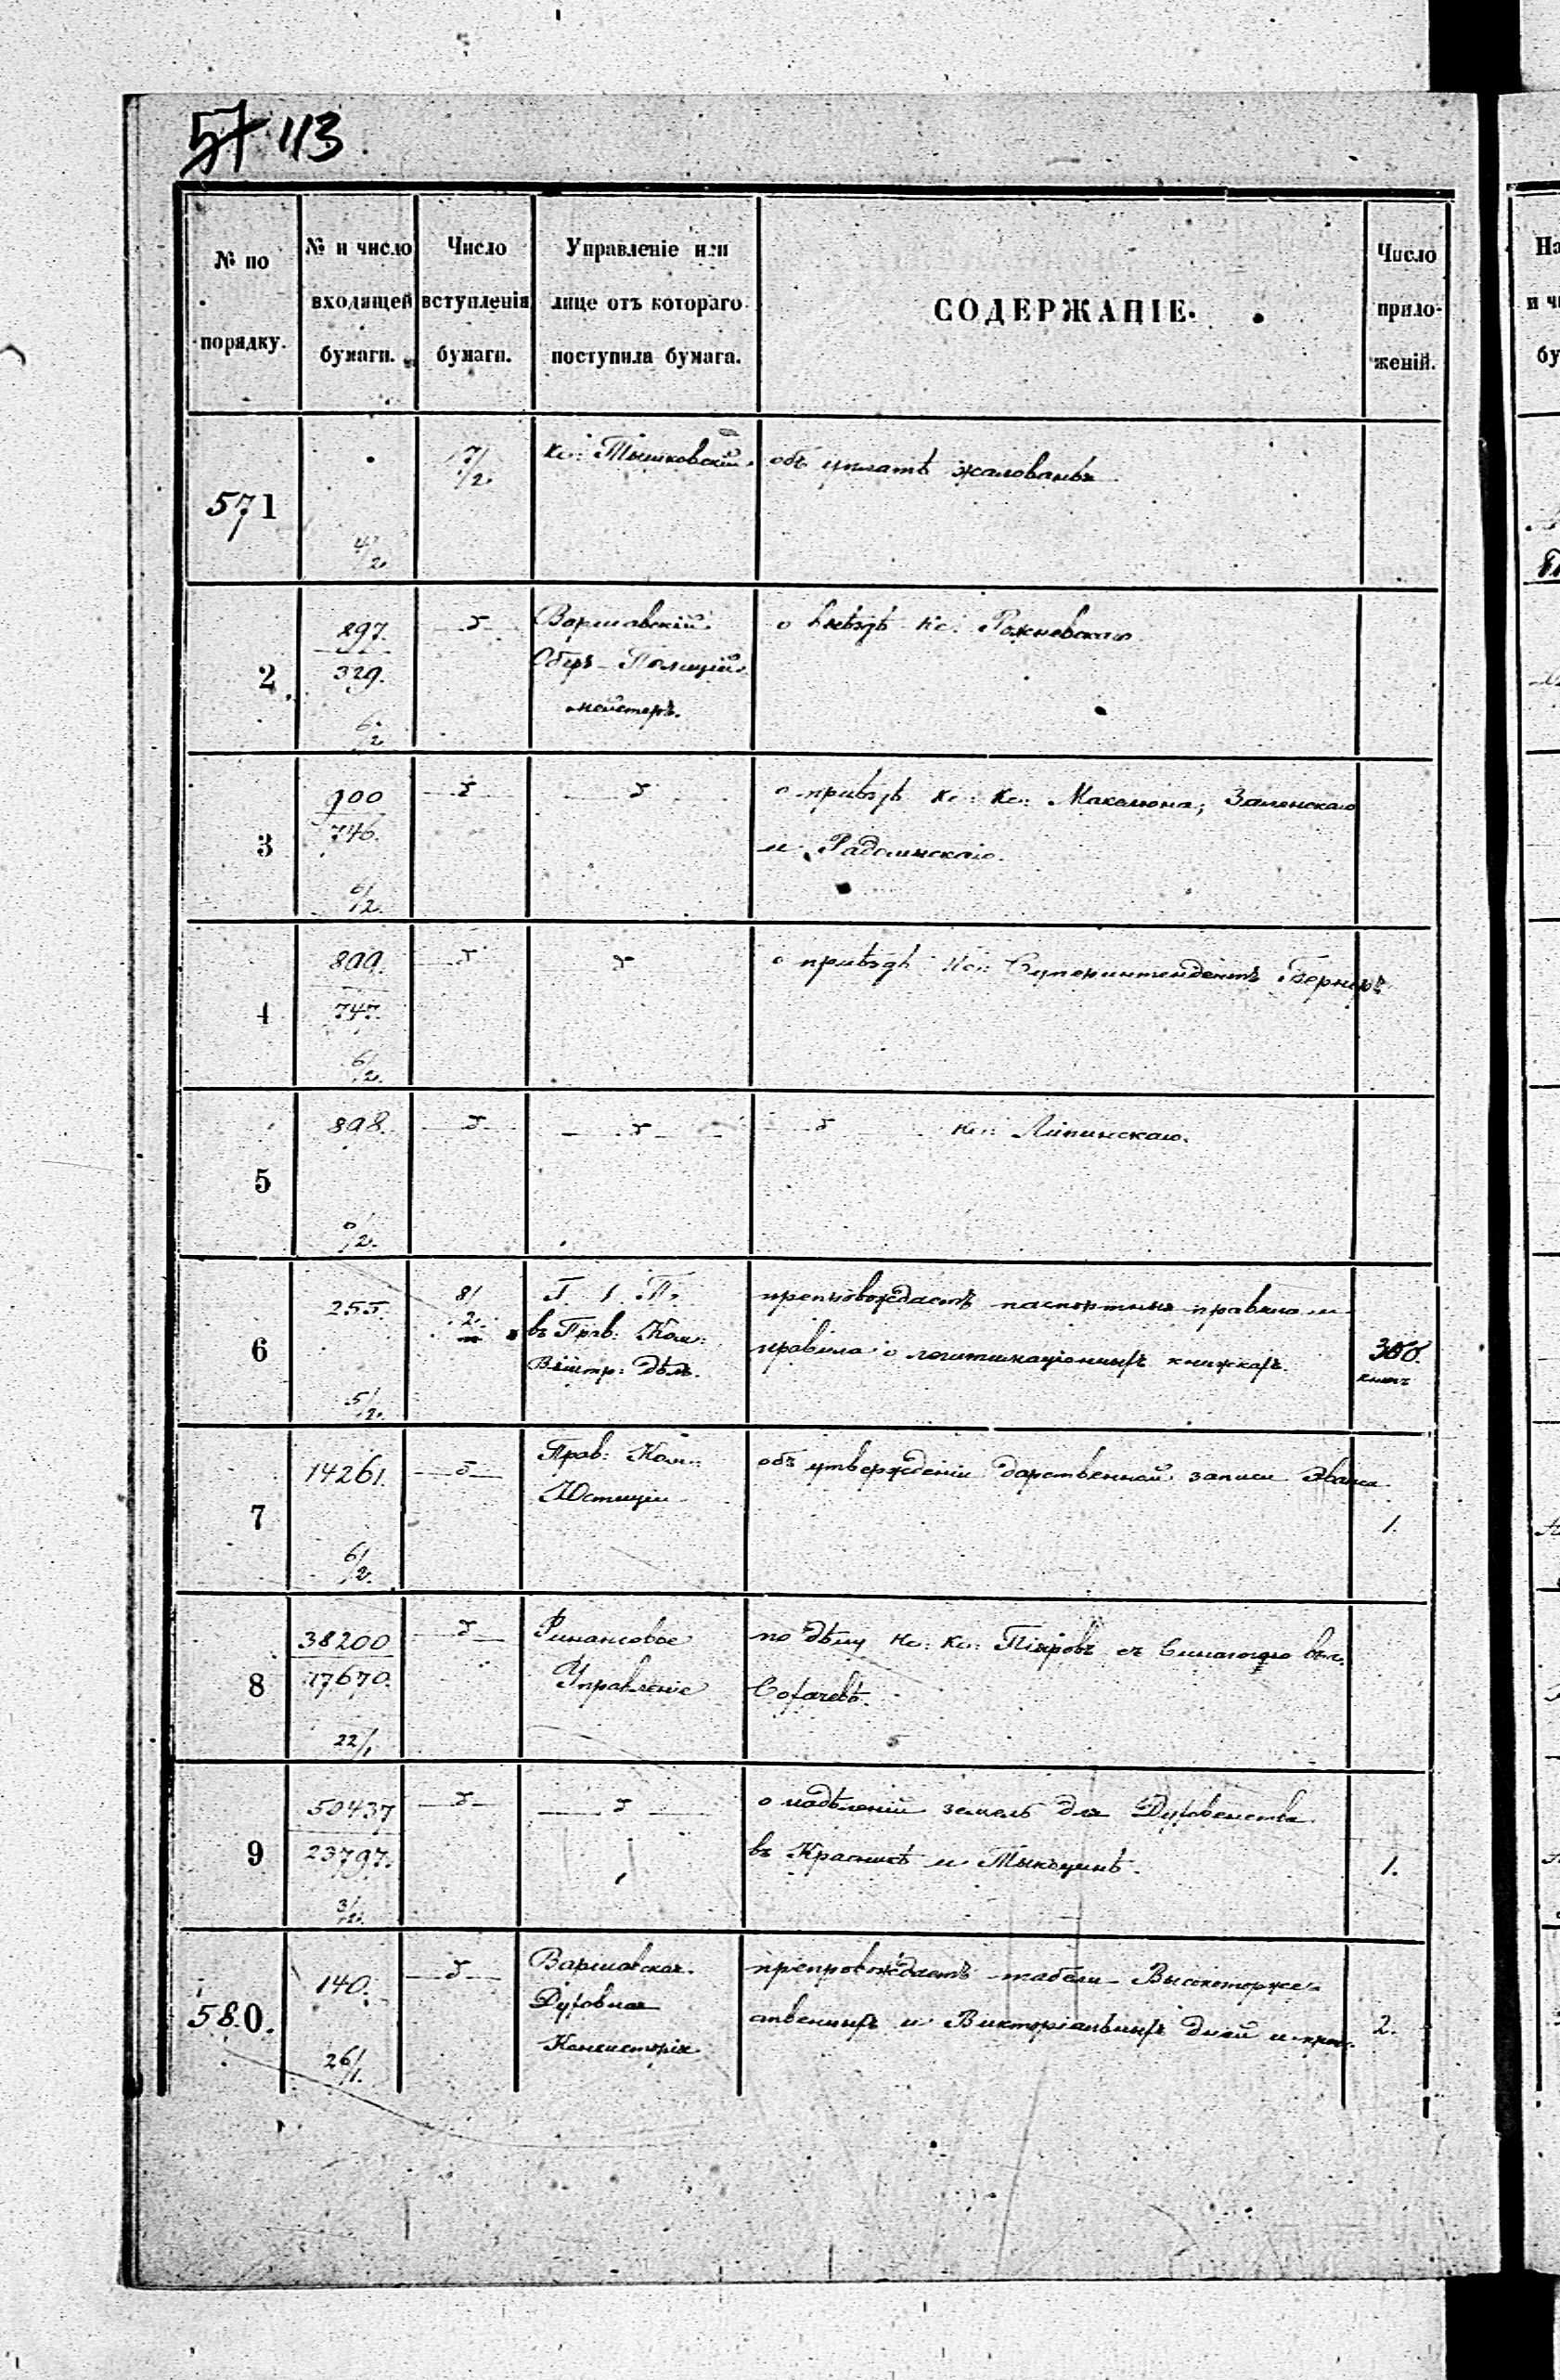 57 113
№ по порядку.
№ и число входящей бумаги.
Число вступленія бумаги.
Управленіе или лице отъ котораго поступила бумага.
СОДЕРЖАНІЕ.
Число приложеній.
571
4/2.
7/2.
Кс: Тышковскій.
объ уплатѣ жалованья
2
897.
329.
6/2
Варшавскій
Оберъ-Полиций-
мейстеръ.
о выѣздѣ Кс.
3
900
746.
6/2.
о пріѣздѣ Кс: Кс: Заленскаго
и Радолинскаго.
4
899.
747.
6/2.
о пріѣздѣ Кс: Суперинтендентъ Бернеръ
5
898.
Кс: Липинскаго.
6
255
5/2.
8/2.
Г. І. П.
въ Прав: Ком:
Внутр: Дѣлъ.
препровождаетъ паспортныя правила и
правила о легитимаціонныхъ книжкахъ.
7
14261.
6/2.
Прав: Ком:
Юстиціи
объ утвержденіи дарственной записи
1.
8
38200
17670.
22/1
Финансовое
Управленіе
по дѣлу Кс: Кс: Піяровъ съ
9
50437
23797.
3/2.
о надѣленіи земель для Духовенства
въ Красникѣ и Тыкоцинѣ.
1.
580.
140.
26/1.
Варшавская
Духовная
Консисторія
препровождаетъ табели Высокоторже-
ственныхъ и Викторіальныхъ дней и
2.